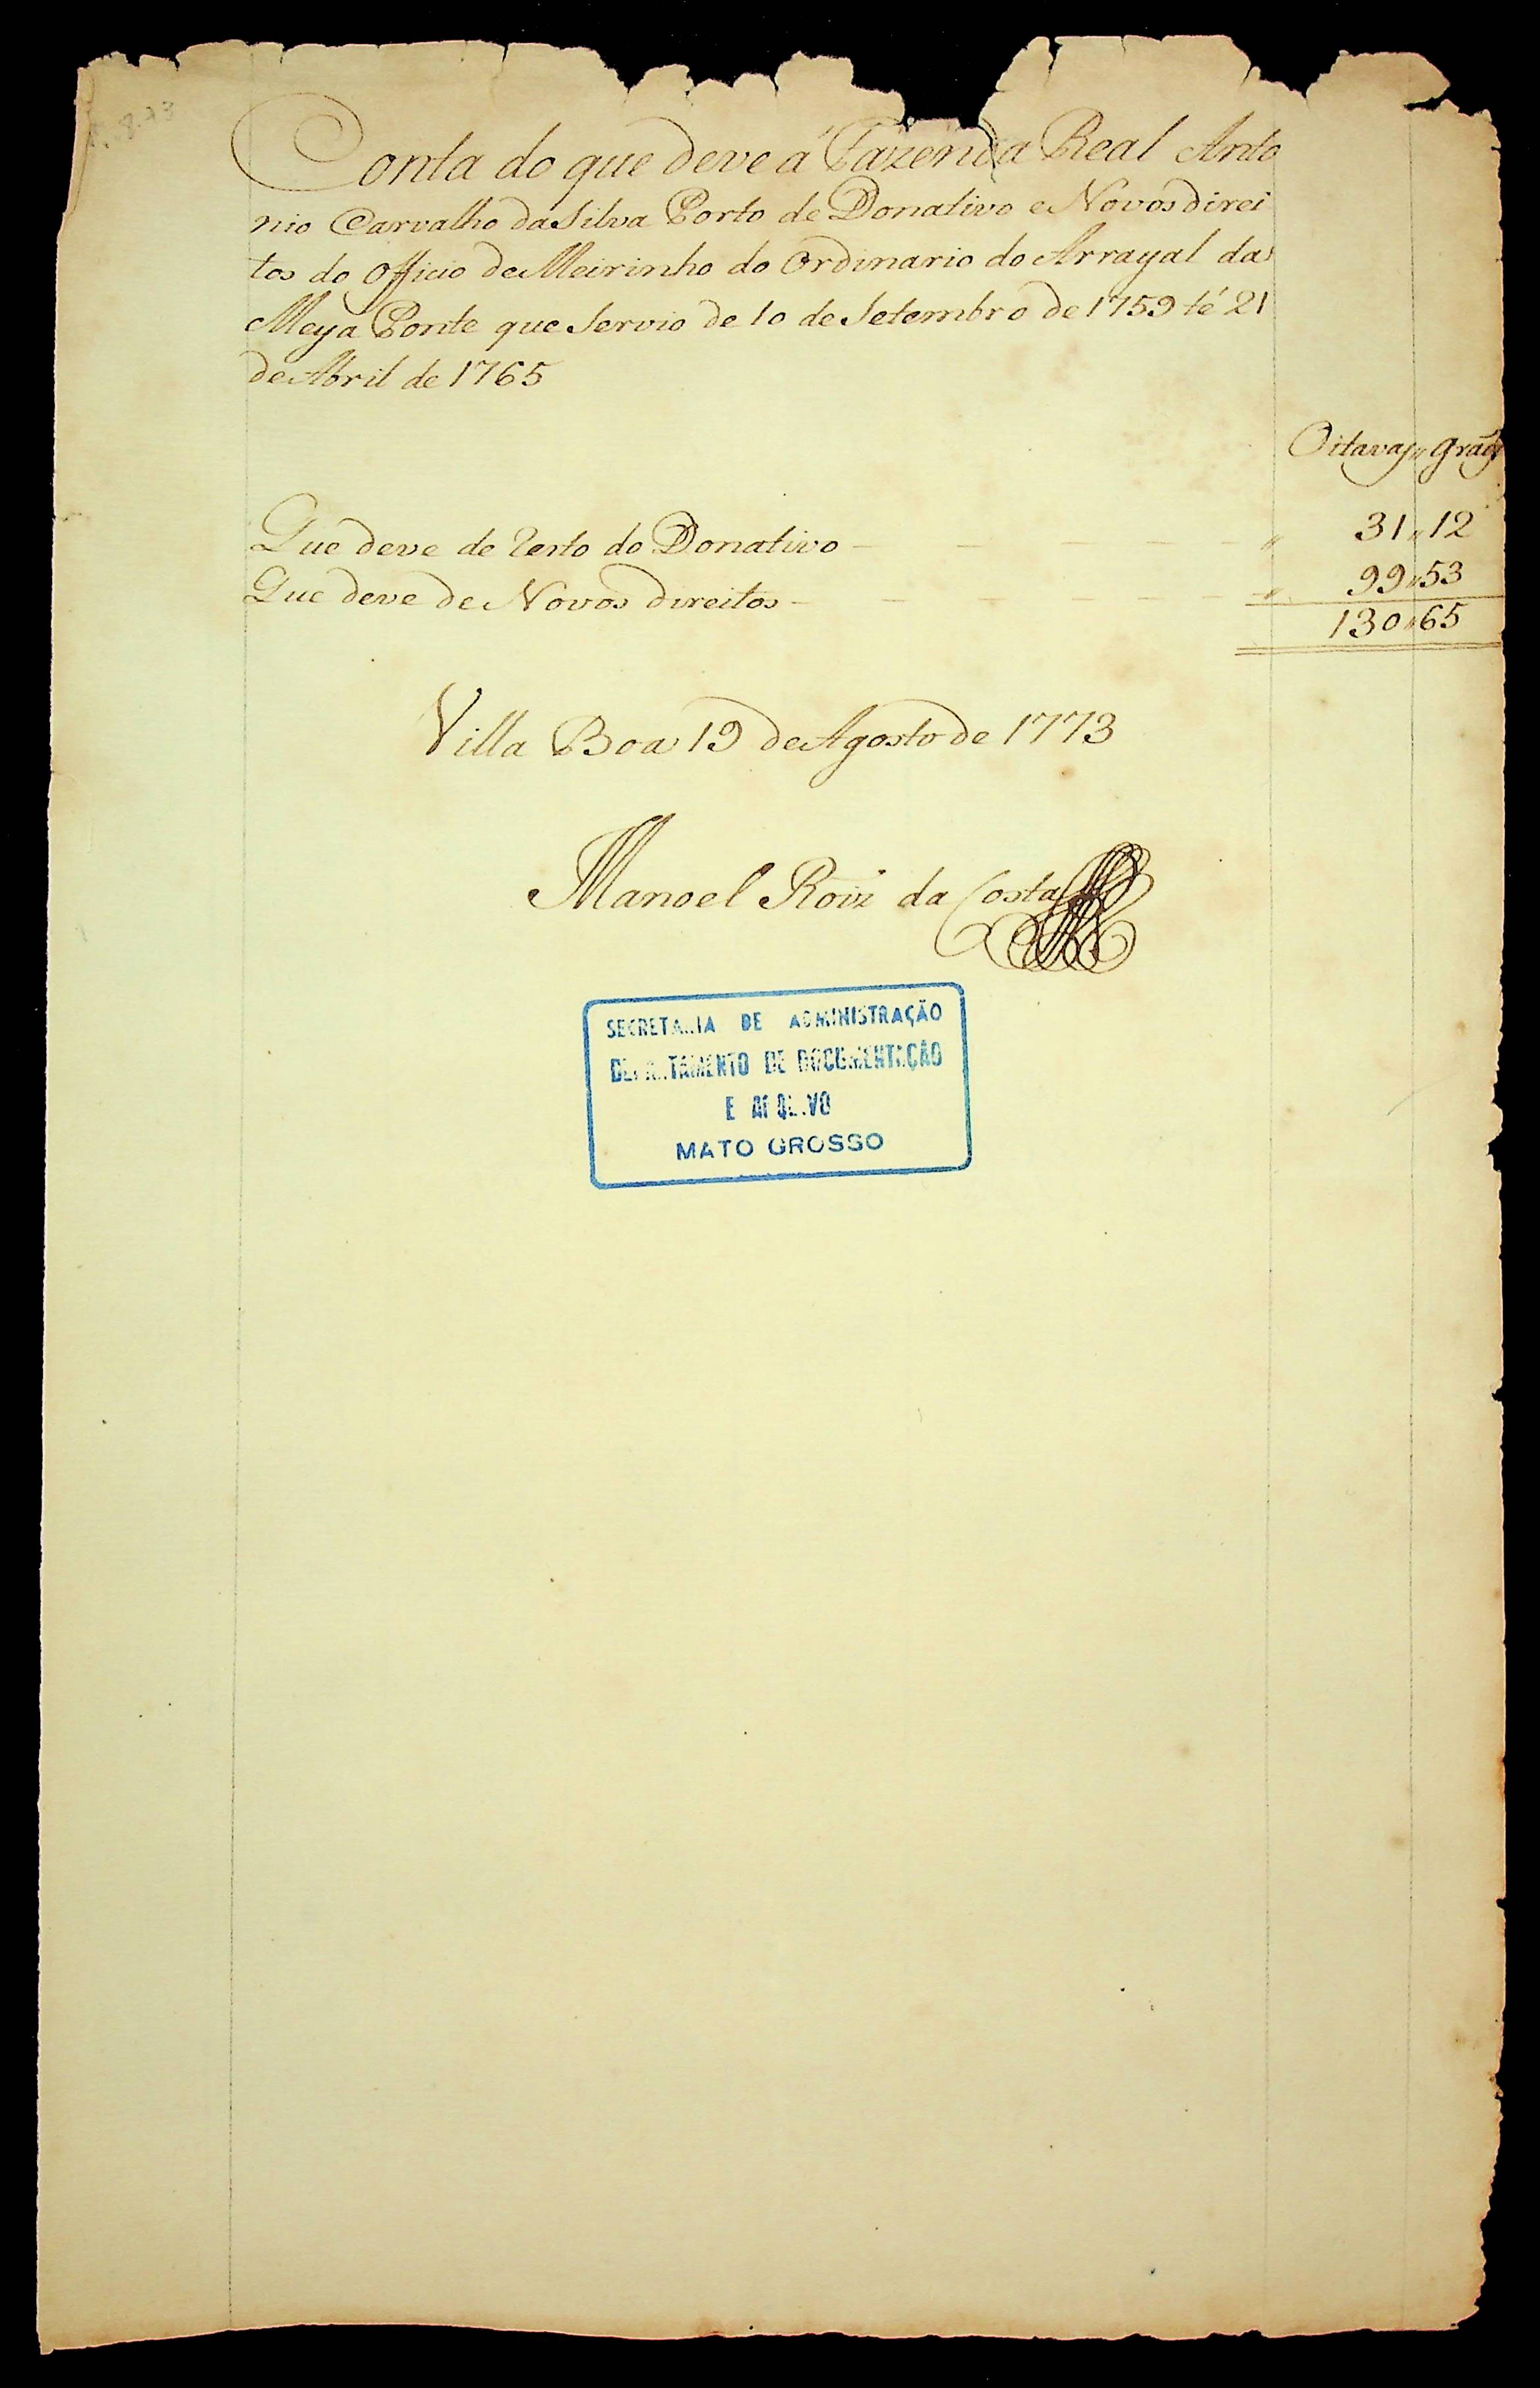 Conta do que deve á Fazenda Real Anto
nio Carvalho da Silva Porto de Donativo e Novos direi
tos do Officio de Meirinho do Ordinario do Arrayal da
Meya Ponte que servio de 10 de Setembro de 1759 té 21
de Abril de 1765
Oitavas,, grãos
Que deve de resto do Donativo - - - - ,, 31,,12
Que deve de Novos direitos - - - - ,, 99,,53
130,,65
Villa Boa 19 de Agosto de 1773
Manoel Roiz da Costa
SECRETARIA DE ADMINISTRAÇÃO
DEPARTAMENTO DE DOCUMENTAÇÃO
E ARQUIVO
MATO GROSSO